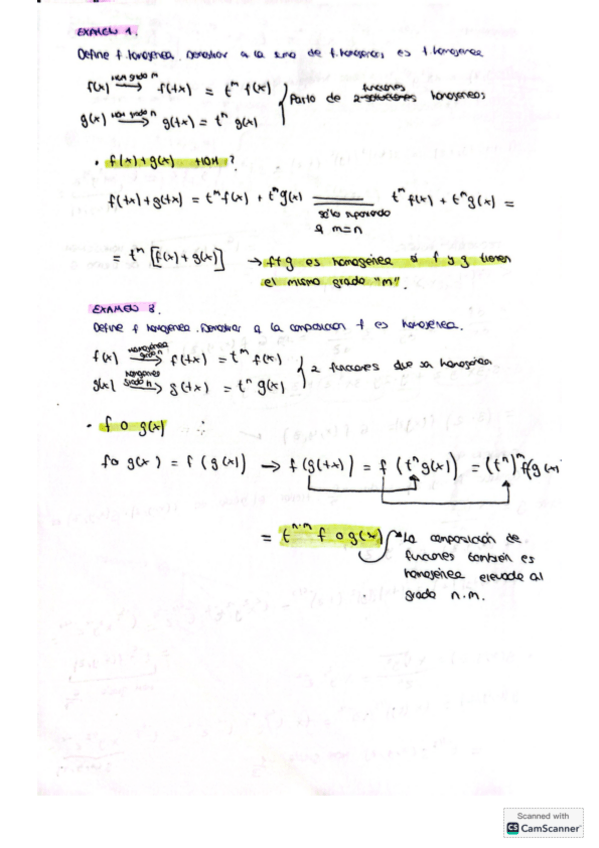 EXAMEN 1.
Define f. homogénea. Demostrar q la suma de f. homogéneas es f. homogénea
f(x) hom grado m → f(tx) = t^m f(x)
g(x) hom grado n → g(tx) = t^n g(x)
Parto de 2 funciones homogéneas
• f(x)+g(x) ?
f(tx)+g(tx) = t^m f(x) + t^n g(x) sólo suponiendo q m=n t^m f(x) + t^m g(x) =
= t^m [f(x)+g(x)] → f+g es homogénea si f y g tienen
el mismo grado "m".
EXAMEN 3.
Define f homogénea. Demostrar q la composición f es homogénea.
f(x) homogénea grado m → f(tx) = t^m f(x)
g(x) homogénea grado n → g(tx) = t^n g(x)
2 funciones que son homogénea
• f o g(x) ∴
f o g(x) = f(g(x)) → f(g(tx)) = f(t^n g(x)) = (t^n)^m f(g(x)
= t^n·m f o g(x)
La composición de
funciones también es
homogénea elevada al
grado n.m.
Scanned with
CS CamScanner